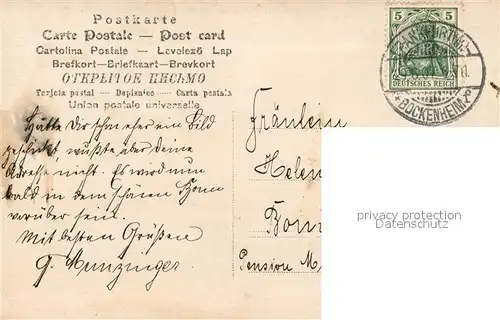 Postkarte
Carte Postale — Post card
Cartolina Postale — Levelező Lap
Brefkort—Briefkaart—Brevkort
ОТКРЫТОЕ ПИСЬМО
Tarjeta postal — Dopisnice — Carta postala
Union postale universelle
5 5
DEUTSCHES REICH
FRANKFURT(M.)-
BOCKENHEIM 2
Hätte Dir schon eher ein Bild
geschickt wußte aber deine
Adresse nicht. Es wird nun
bald in dem schönen Bonn
vorüber sein.
Mit besten Grüßen
G. Munzinger.
Fräulein
Helen
Bonn
Pension M
privacy protection
Datenschutz